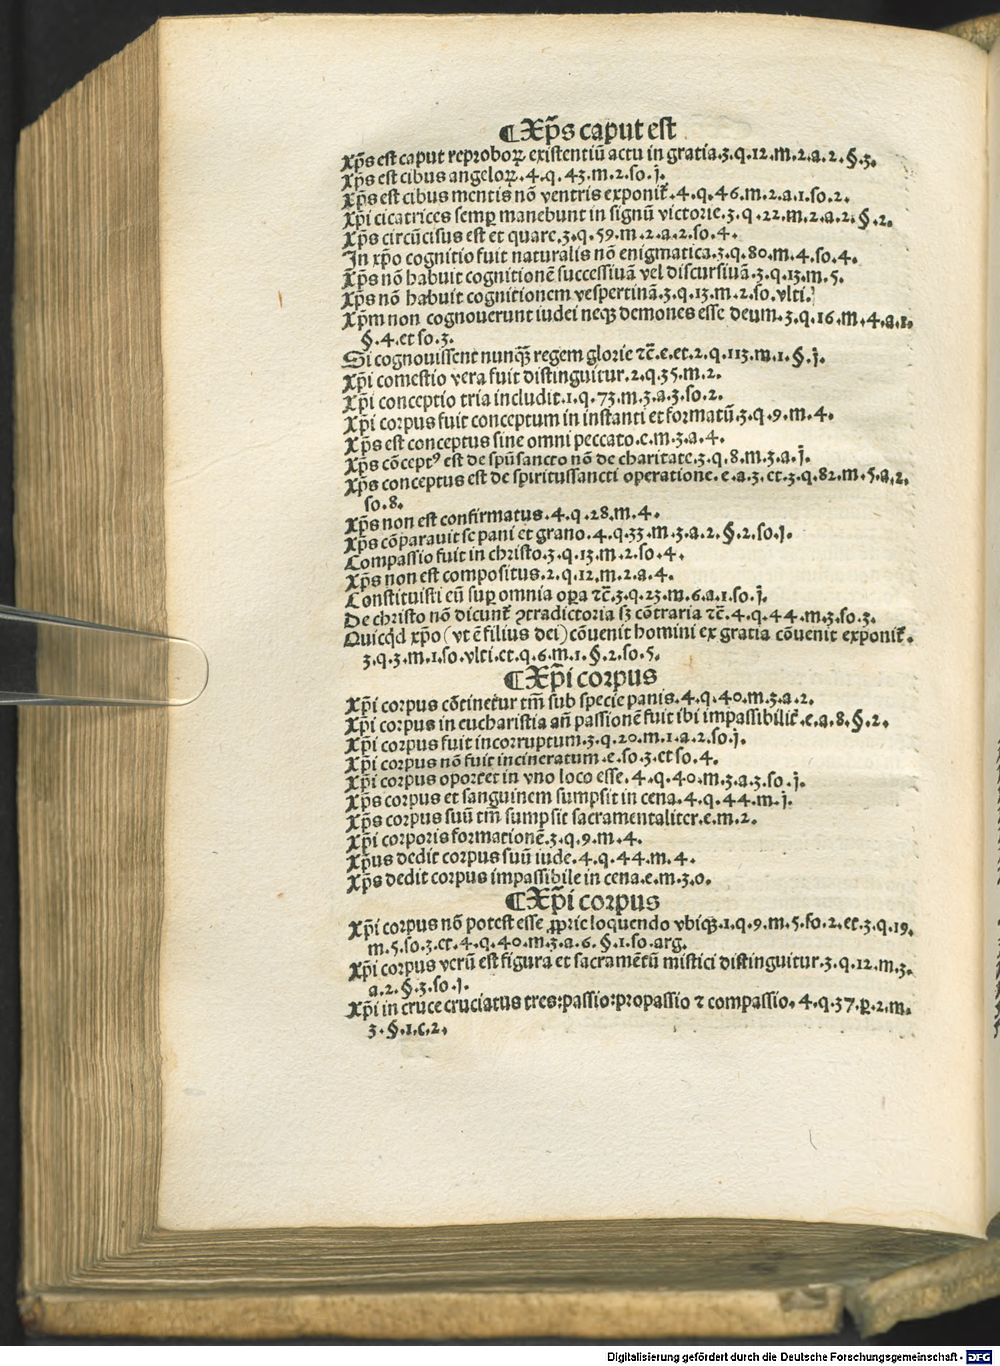 ¶Xp̄s caput est
Xp̄s est caput reproboꝝ existentiū actu in gratia.3.q.12.m.2.a.2.§.3.
Xp̄s est cibus angeloꝝ.4.q.43.m.2.so.j.
Xp̄s est cibus mentis nō ventris exponit̄.4.q.46.m.2.a.1.so.2.
Xp̄i cicatrices semꝑ manebunt in signū victorie.3.q.22.m.2.a.2.§.2.
Xp̄s circūcisus est et quare.3.q.59.m.2.a.2.so.4.
In xp̄o cognitio fuit naturalis nō enigmatica.3.q.80.m.4.so.4.
Xp̄s nō habuit cognitionē successiuā vel discursiuā.3.q.13.m.5.
Xp̄s nō habuit cognitionem vespertinā.3.q.13.m.2.so.vlti.
Xp̄m non cognouerunt iudei neqꝫ demones esse deum.3.q.16.m.4.a.1.
§.4.et so.3.
Si cognouissent nunqꝫ̄ regem glorie ⁊c̄.e.et.2.q.113.m.1.§.j.
Xp̄i comestio vera fuit distinguitur.2.q.35.m.2.
Xp̄i conceptio tria includit.1.q.73.m.3.a.3.so.2.
Xp̄i corpus fuit conceptum in instanti et formatū.3.q.9.m.4.
Xp̄s est conceptus sine omni peccato.e.m.3.a.4.
Xp̄s cōceptꝰ est de spū sancto nō de charitate.3.q.8.m.3.a.j.
Xp̄s conceptus est de spiritussancti operatione.e.a.3.et.3.q.82.m.5.a.2.
so.8.
Xp̄s non est confirmatus.4.q.28.m.4.
Xp̄s cōparauit se pani et grano.4.q.33.m.3.a.2.§.2.so.j.
Compassio fuit in christo.3.q.13.m.2.so.4.
Xp̄s non est compositus.2.q.12.m.2.a.4.
Constituisti eū suꝑ omnia oꝑa ⁊c̄.3.q.23.m.6.a.1.so.j.
De christo nō dicunt̄ ꝯtradictoria sꝫ cōtraria ⁊c̄.4.q.44.m.3.so.3.
Quicqd xp̄o (vt ē filius dei) cōuenit homini ex gratia cōuenit exponit̄.
3.q.3.m.1.so.vlti.et.q.6.m.1.§.2.so.5.
¶Xp̄i corpus
Xp̄i corpus cōtinetur tm̄ sub specie panis.4.q.40.m.3.a.2.
Xp̄i corpus in eucharistia an̄ passionē fuit ibi impassibilit̄.e.a.8.§.2.
Xp̄i corpus fuit incorruptum.3.q.20.m.1.a.2.so.j.
Xp̄i corpus nō fuit incineratum.e.so.3.et so.4.
Xp̄i corpus oportet in vno loco esse.4.q.40.m.3.a.3.so.j.
Xp̄s corpus et sanguinem sumpsit in cena.4.q.44.m.j.
Xp̄s corpus suū tm̄ sumpsit sacramentaliter.e.m.2.
Xp̄i corporis formationē.3.q.9.m.4.
Xp̄us dedit corpus suū iude.4.q.44.m.4.
Xp̄s dedit corpus impassibile in cena.e.m.3.o.
¶Xp̄i corpus
Xp̄i corpus nō potest esse ꝓprie loquendo vbiqꝫ.1.q.9.m.5.so.2.et.3.q.19.
m.5.so.3.et.4.q.40.m.3.a.6.§.1.so.arg.
Xp̄i corpus verū est figura et sacramētū mistici distinguitur.3.q.12.m.3.
a.2.§.3.so.j.
Xp̄i in cruce cruciatus tres:passio:propassio ⁊ compassio.4.q.37.ꝑ.2.m.
3.§.1.c.2.
Digitalisierung gefördert durch die Deutsche Forschungsgemeinschaft - DFG